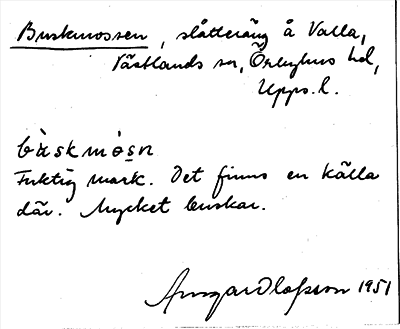 Buskmossen, slåtteräng å Valla,
Västlands sn, Örbyhus hd,
Upps. l.
bàskmòsn
Fuktig mark. Det finns en källa
där. Mycket buskar.
Ansgar Olofsson 1951